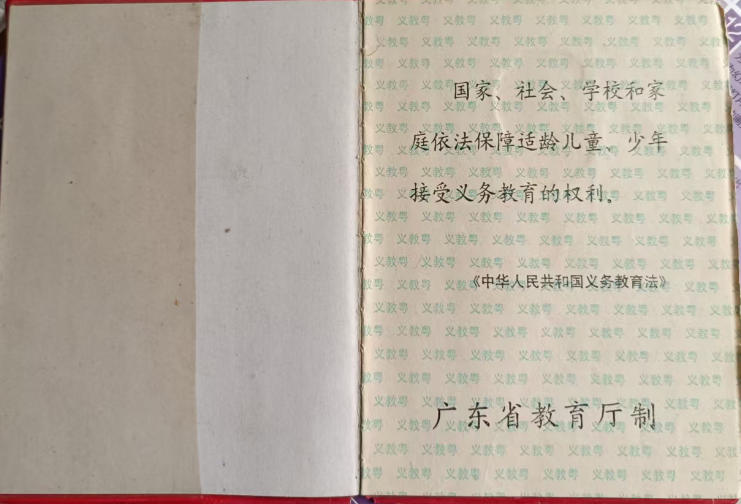 国家、社会、学校和家
庭依法保障适龄儿童、少年
接受义务教育的权利。
《中华人民共和国义务教育法》
广东省教育厅制